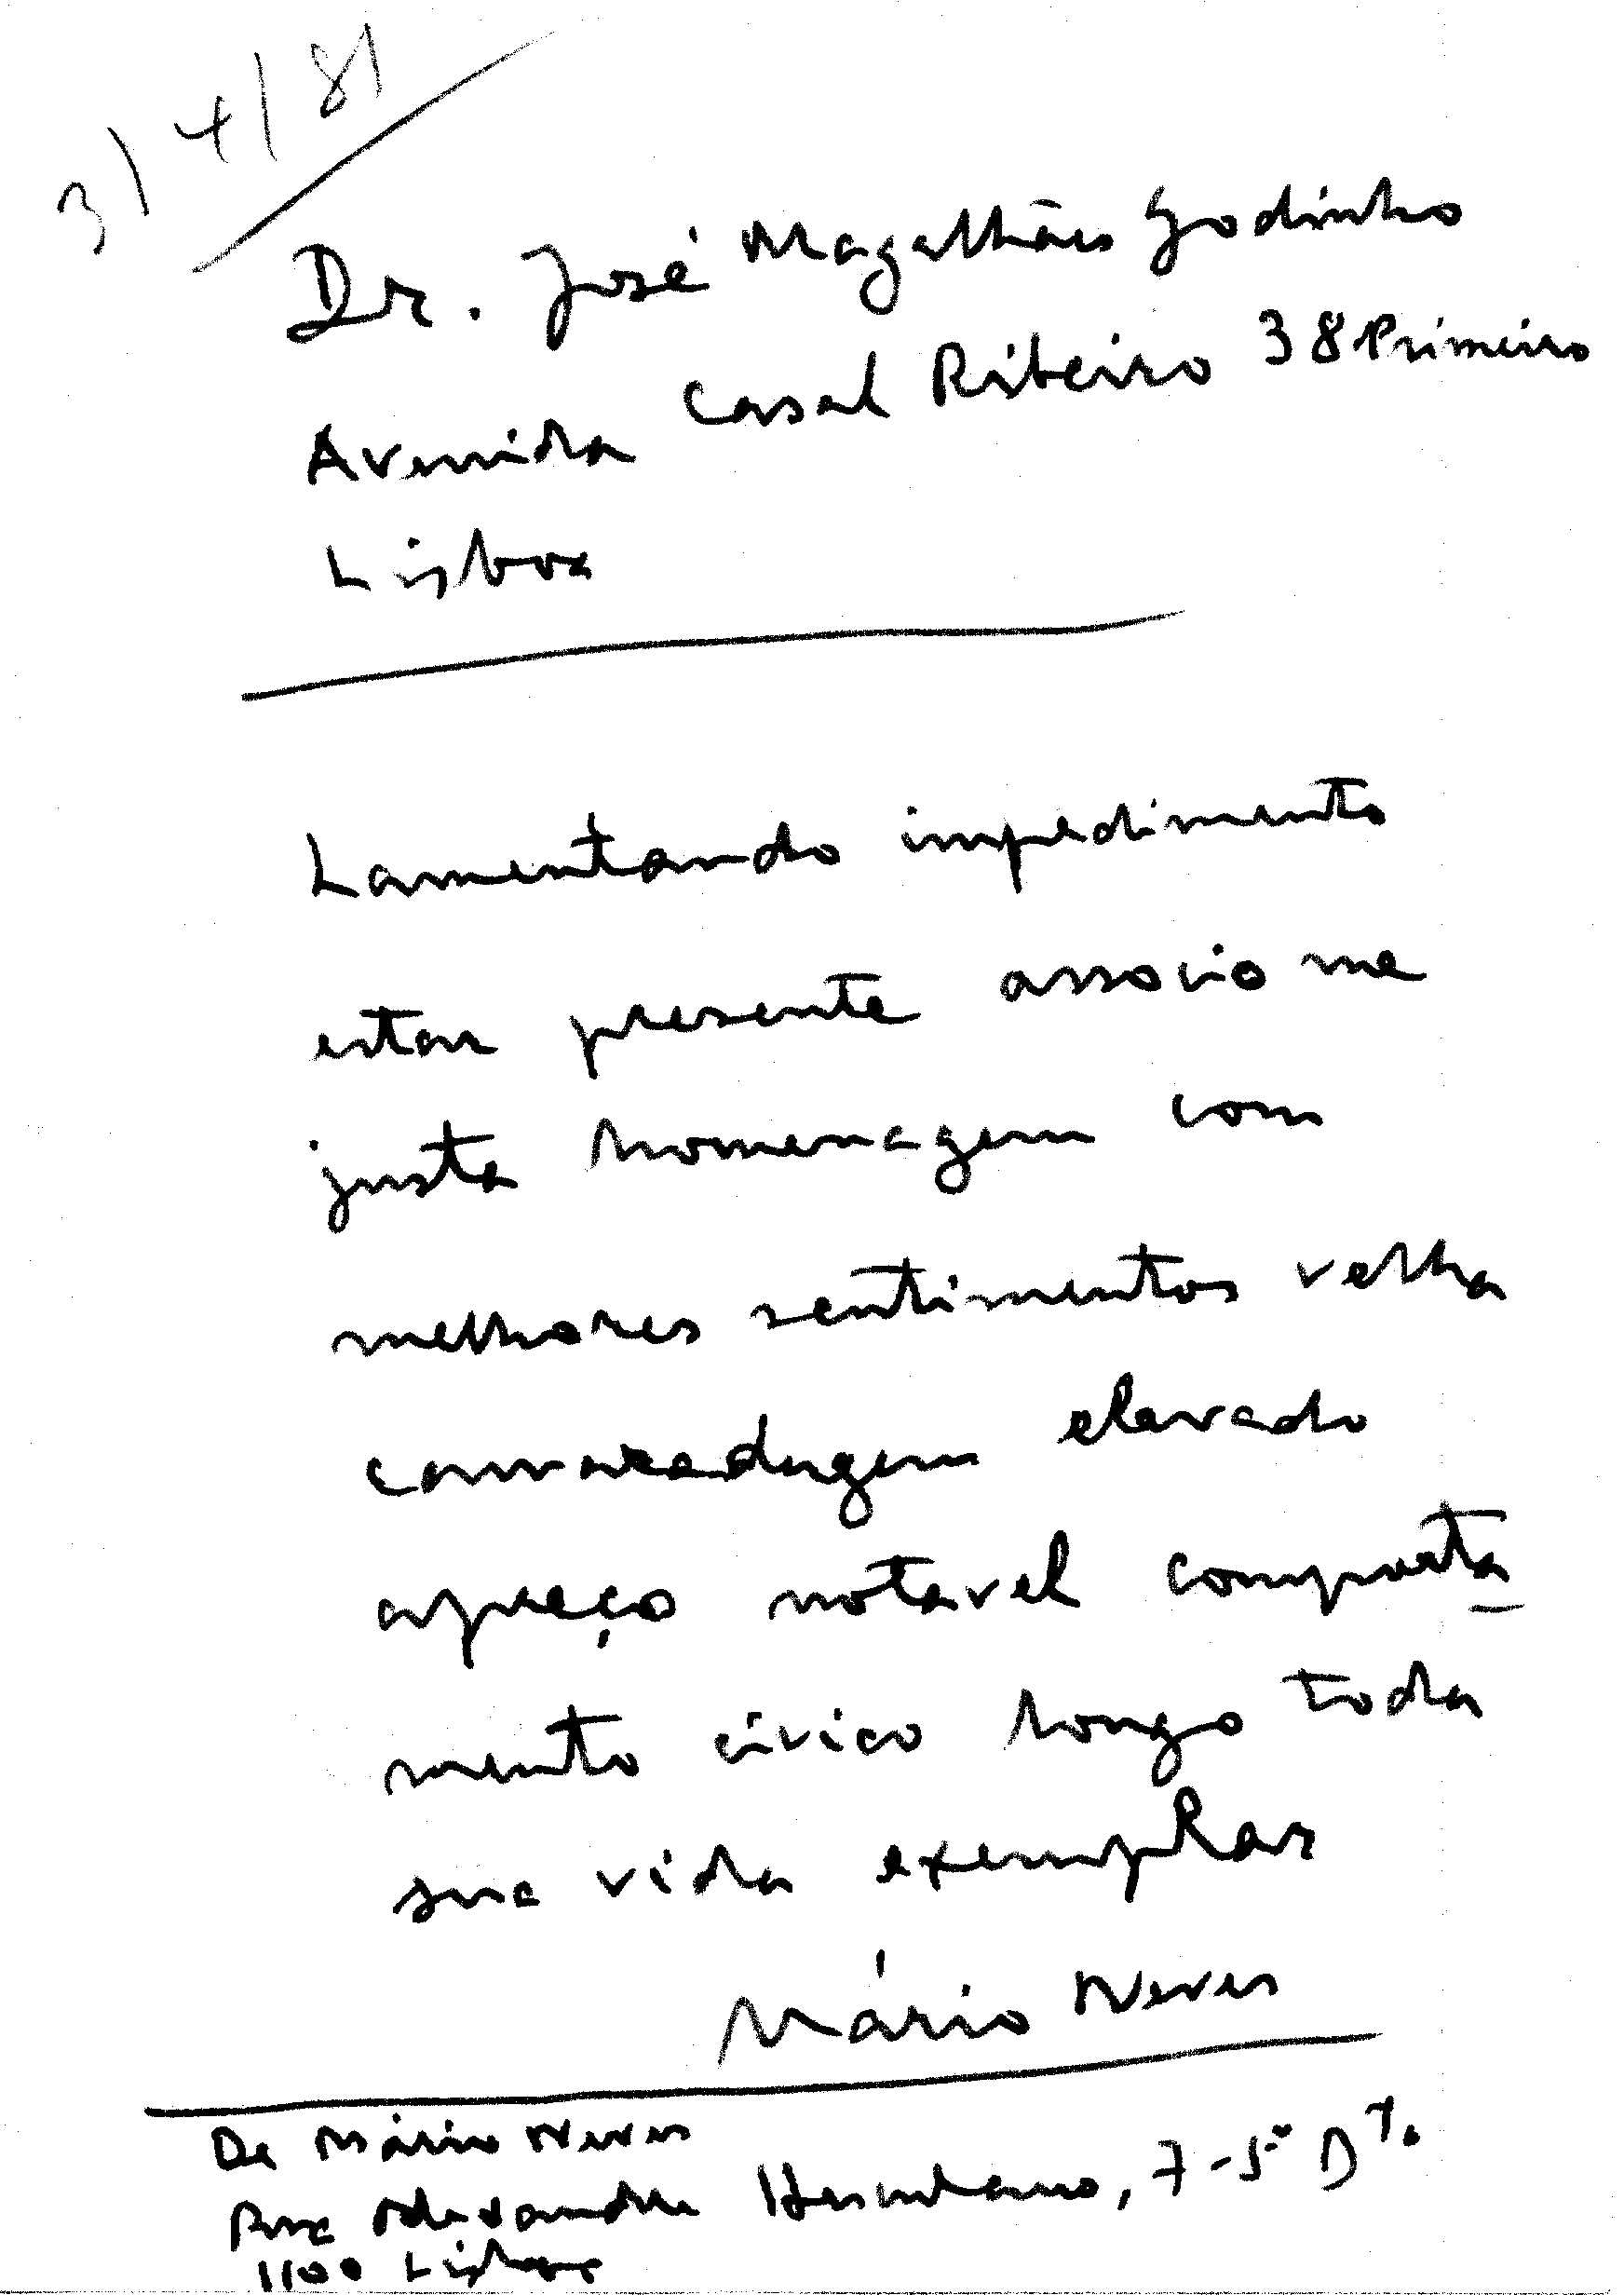 3/4/81
Dr. José Magalhães Godinho
Avenida Casal Ribeiro 38 Primeiro
Lisboa
Lamentando impedimento
estar presente associo me
justa homenagem com
melhores sentimentos velha
camaradagem elevado
apreço notavel comporta
mento cívico longo toda
sua vida exemplar
Mário Neves
De Mário Neves
Rua Alexandre Herculano, 7-5º Dto.
1100 Lisboa